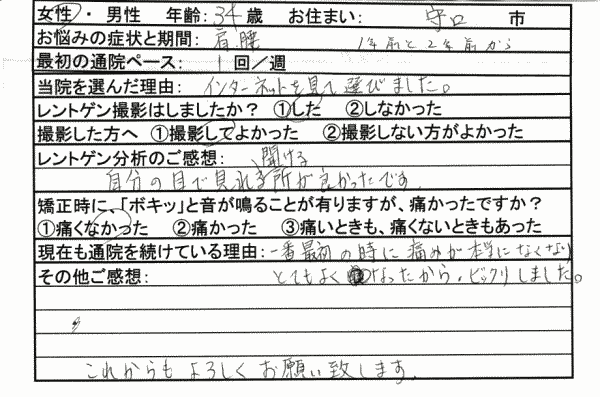 女性・男性 年齢:34歳 お住まい:守口市
お悩みの症状と期間:肩、腰 1年前と2年前から
最初の通院ペース: 1回/週
当院を選んだ理由:インターネットを見て選びました。
レントゲン撮影はしましたか? ①した ②しなかった
撮影した方へ ①撮影してよかった ②撮影しない方がよかった
レントゲン分析のご感想: 、聞ける
自分の目で見れる所が良かったです。
矯正時に、「ボキッ」と音が鳴ることが有りますが、痛かったですか?
①痛くなかった ②痛かった ③痛いときも、痛くないときもあった
現在も通院を続けている理由:一番最初の時に痛みが本当になくなり
その他ご感想: とてもよくなったから。ビックリしました。
これからもよろしくお願い致します。